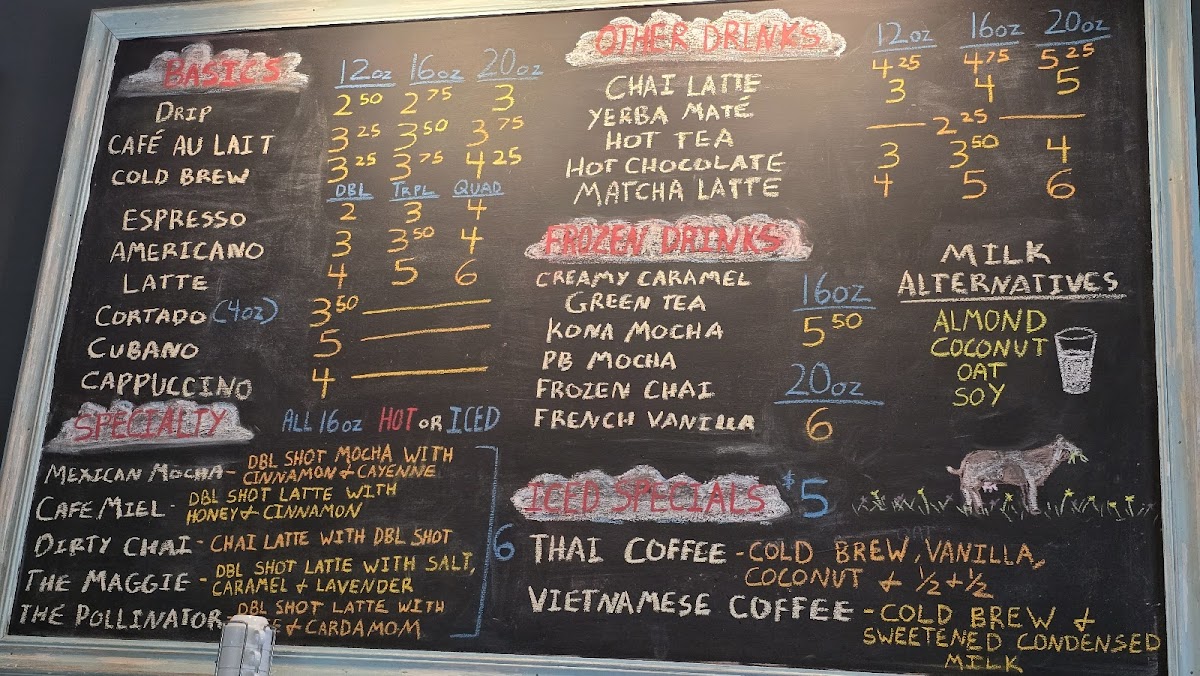 BASICS 12oz 16oz 20oz
DRIP 2 50 2 75 3
CAFÉ AU LAIT 3 25 3 50 3 75
COLD BREW 3 25 3 75 4 25
DBL TRPL QUAD
ESPRESSO 2 3 4
AMERICANO 3 3 50 4
LATTE 4 5 6
CORTADO (4oz) 3 50
CUBANO 5
CAPPUCCINO 4
SPECIALTY ALL 16oz HOT OR ICED
MEXICAN MOCHA - DBL SHOT MOCHA WITH
CINNAMON & CAYENNE
CAFE MIEL - DBL SHOT LATTE WITH
HONEY & CINNAMON
DIRTY CHAI - CHAI LATTE WITH DBL SHOT
6
THE MAGGIE - DBL SHOT LATTE WITH SALT,
CARAMEL & LAVENDER
THE POLLINATOR - DBL SHOT LATTE WITH
& CARDAMOM
OTHER DRINKS 12oz 16oz 20oz
CHAI LATTE 4 25 4 75 5 25
YERBA MATÉ 3 4 5
HOT TEA 2 25
HOT CHOCOLATE 3 3 50 4
MATCHA LATTE 4 5 6
FROZEN DRINKS
CREAMY CARAMEL
GREEN TEA
KONA MOCHA
PB MOCHA
FROZEN CHAI
FRENCH VANILLA
16oz
5 50
20oz
6
MILK
ALTERNATIVES
ALMOND
COCONUT
OAT
SOY
ICED SPECIALS $5
THAI COFFEE - COLD BREW, VANILLA,
COCONUT & ½ + ½
VIETNAMESE COFFEE - COLD BREW &
SWEETENED CONDENSED
MILK